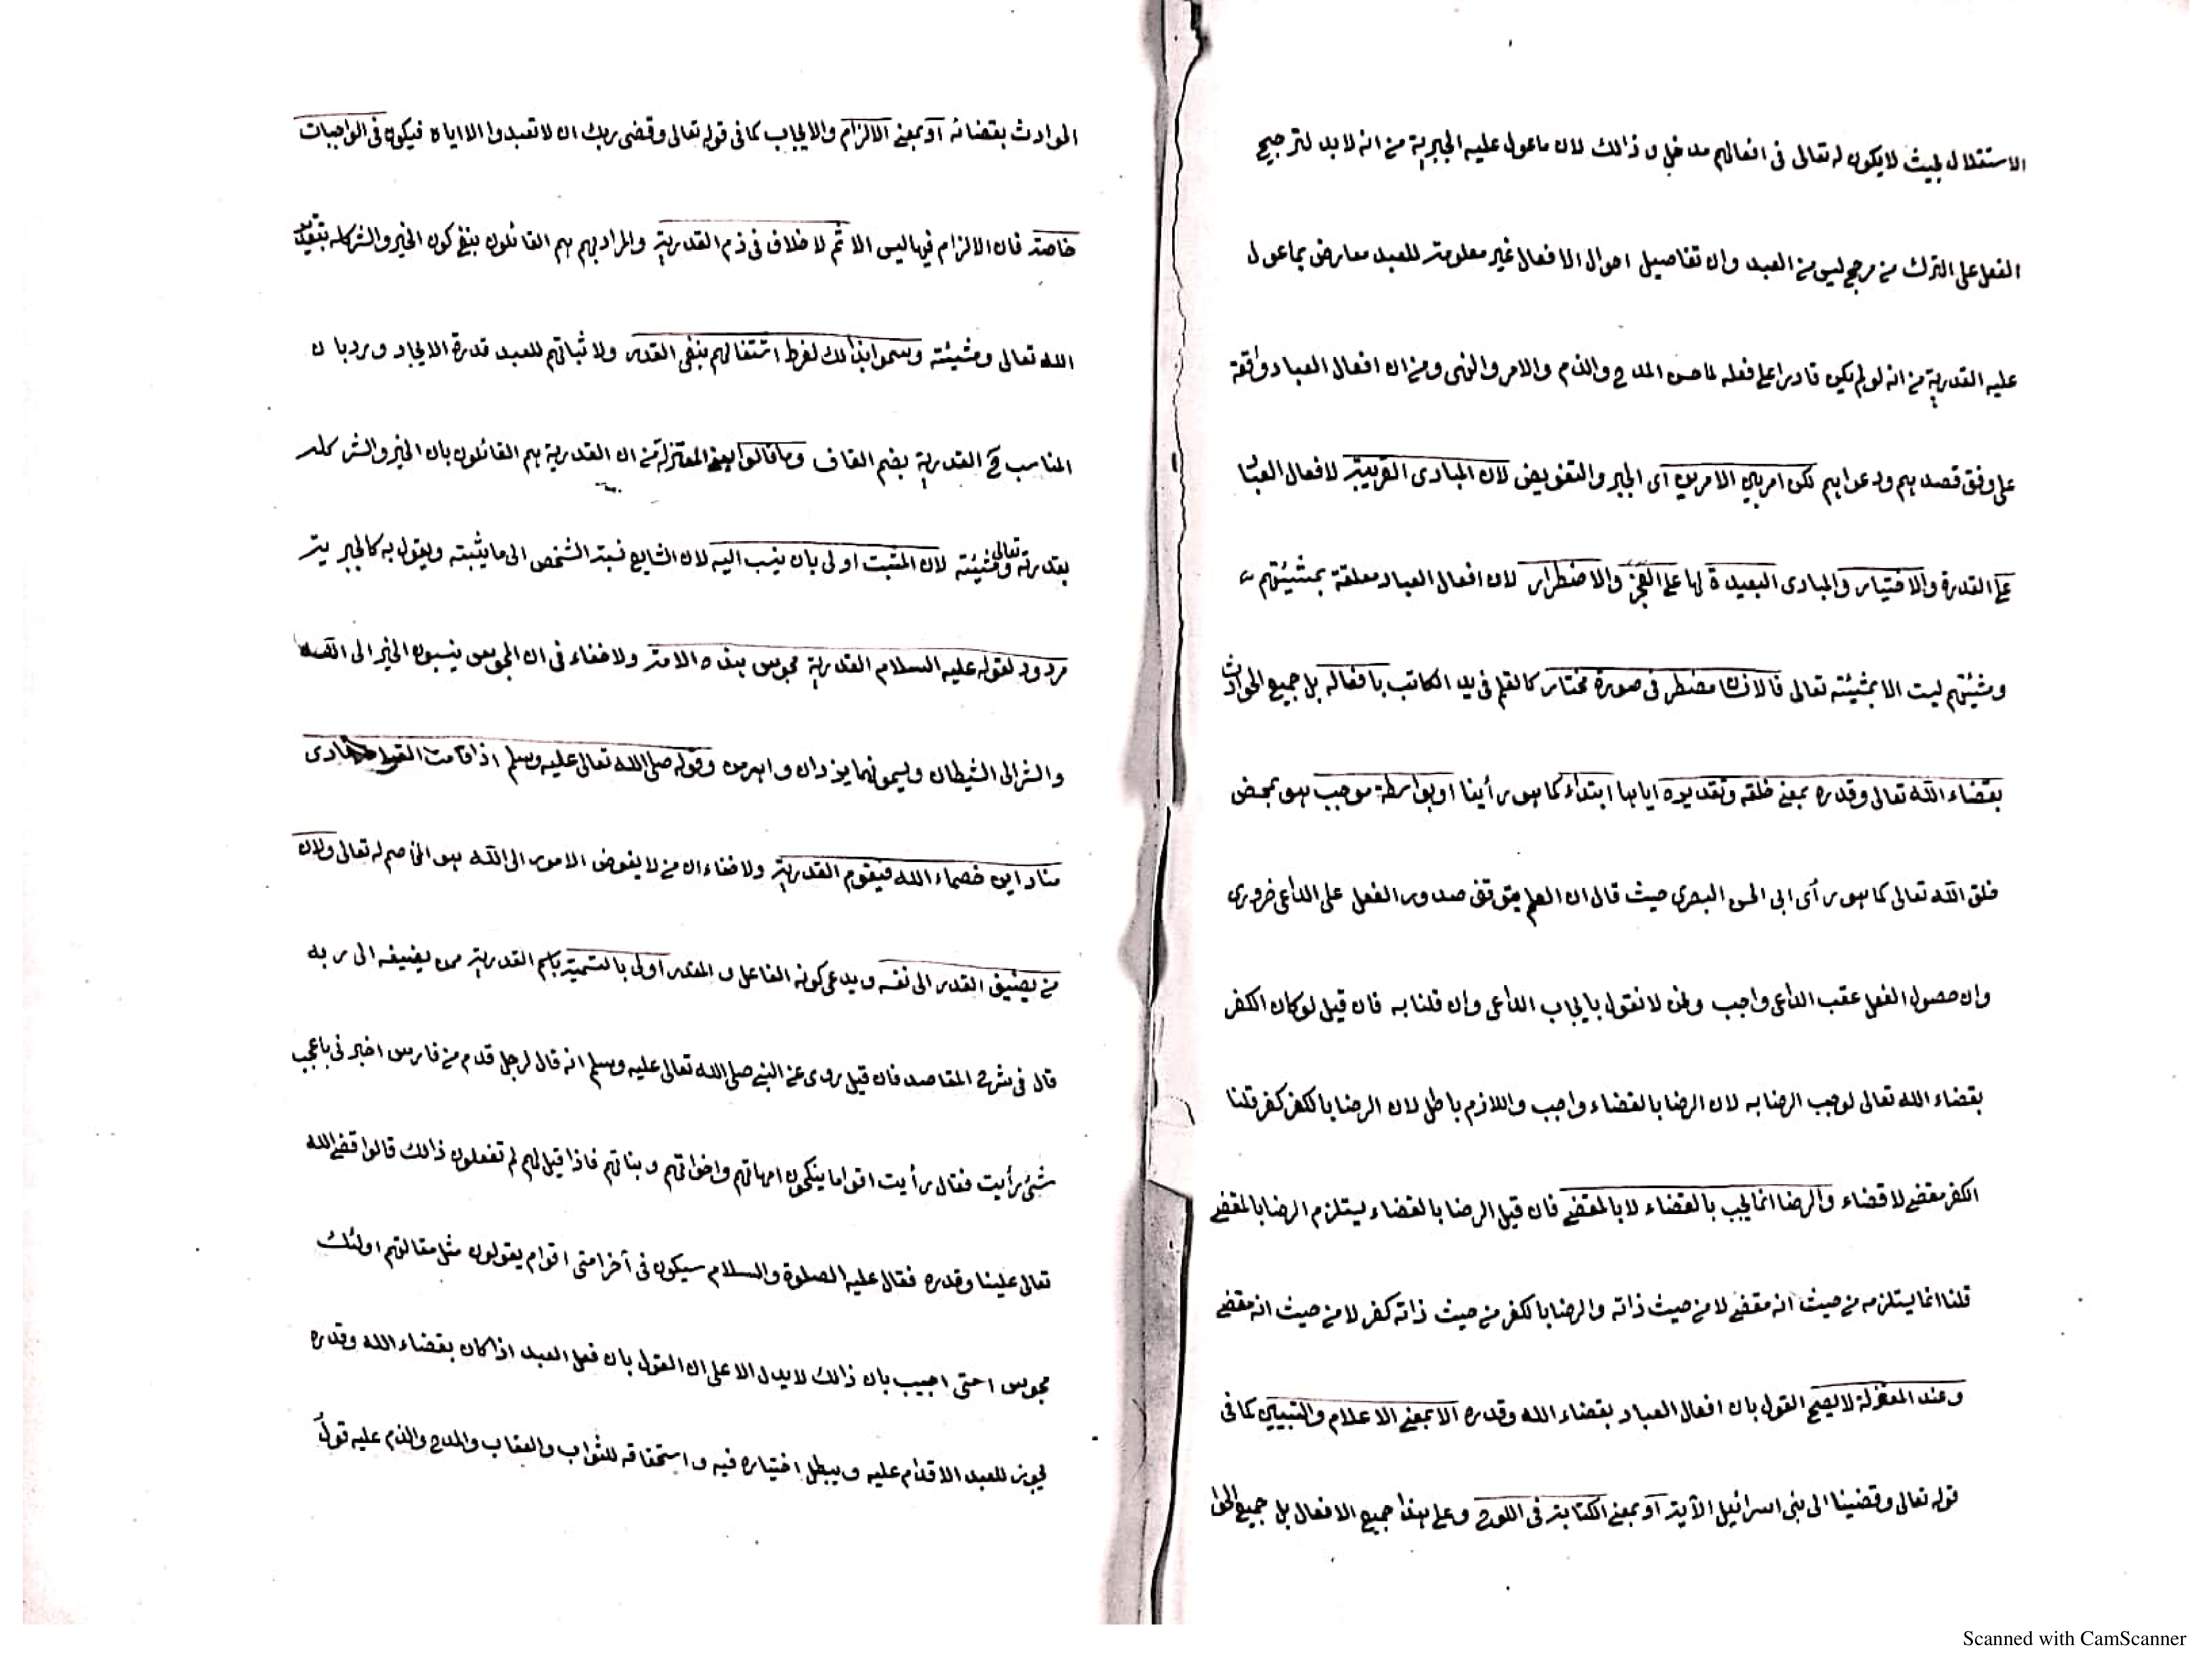 الاستقلال بحيث لا يكون له تعالى فى افعالهم مدخل و ذالك لان ما عول عليه الجبرية من انه لا بد لترجيح
الفعل على الترك من مرجح ليس من العبد وان تفاصيل احوال الافعال غير معلومة للعبد معارض بما عول
عليه القدرية من انه لو لم يكن قادرا على فعله لما حسن المدح والذم والامر والنهى ومن ان افعال العباد واقعة
على وفق قصدهم ودعواهم لكن امر بين الامرين اى الجبر والتفويض لان المبادى القريبة لافعال العباد
على القدرة والاختيار والمبادى البعيدة لها على العجز والاضطرار لان افعال العباد معلقة بمشيئتهم
ومشيئتهم ليست الا بمشيئته تعالى فالانسان مضطر فى صورة مختار كالقلم فى يد الكاتب بافعاله بل جميع الحوادث
بقضاء الله تعالى وقدره بمعنى خلقه وتقديره اياها ابتداء كما هو رأينا او بواسطة موجب هو بمحض
خلق الله تعالى كما هو رأى ابى الحسن البصرى حيث قال ان العلم بتوقف صدور الفعل على الداعى ضرورى
وان حصول الفعل عقب الداعى واجب ونحن لا نقول بايجاب الداعى وان قلنا به فان قيل لو كان الكفر
بقضاء الله تعالى لوجب الرضا به لان الرضا بالقضاء واجب واللازم باطل لان الرضا بالكفر كفر قلنا
الكفر مقضى لا قضاء والرضا انما يجب بالقضاء لا بالمقضى فان قيل الرضا بالقضاء يستلزم الرضا بالمقضى
قلنا انما يستلزمه من حيث انه مقضى لا من حيث ذاته والرضا بالكفر من حيث ذاته كفر لا من حيث انه مقضى
وعند المعتزلة لا يصح القول بان افعال العباد بقضاء الله وقدره الا بمعنى الاعلام والتبيين كما فى
قوله تعالى وقضينا الى بنى اسرائيل الآية او بمعنى الكتابة فى اللوح وعلى هذا جميع الافعال بل جميع الحوا
الحوادث بقضائه او بمعنى الالزام والايجاب كما فى قوله تعالى وقضى ربك ان لا تعبدوا الا اياه فيكون فى الواجبات
خاصة فان الالزام فيها ليس الا ثم لا خلاف فى ذم القدرية والمراد بهم هم القائلون بنفى كون الخير والشر كله بتقدير
الله تعالى ومشيئته وسموا بذالك لفرط اشتغالهم بنفى القدر ولاثباتهم للعبد قدرة الايجاد ويرد بان
المناسب ح القدرية بضم القاف وما قالوا يعنى المعتزلة من ان القدرية هم القائلون بان الخير والشر كله
بقدرته تعالى ومشيئته لان المثبت اولى بان ينسب اليه لان الشايع نسبة الشخص الى ما يثبته ويقول به كالجبرية
مردود لقوله عليه السلام القدرية مجوس هذه الامة ولا خفاء فى ان المجوس ينسبون الخير الى الله
والشر الى الشيطان ويسمونهما يزدان واهرمن وقوله صلى الله تعالى عليه وسلم اذا قامت القيامة نادى
مناد اين خصماء الله فيقوم القدرية ولا خفاء ان من لا يفوض الامور الى الله هو المخاصم له تعالى ولان
من يضيف القدر الى نفسه ويدعى كونه الفاعل و المقدر اولى بالتسمية باسم القدرية ممن يضيفه الى ربه
قال فى شرح المقاصد فان قيل روى عن النبى صلى الله تعالى عليه وسلم انه قال لرجل قدم من فارس اخبرنى باعجب
شئ رأيت فقال رأيت اقواما ينكحون امهاتهم واخواتهم وبناتهم فاذا قيل لهم لم تفعلون ذالك قالوا قضى الله
تعالى علينا وقدره فقال عليه الصلوة والسلام سيكون فى آخر امتى اقوام يقولون مثل مقالتهم اولئك
مجوس امتى اجيب بان ذالك لا يدل الا على ان القول بان فعل العبد اذا كان بقضاء الله وقدره
يجوز للعبد الاقدام عليه ويبطل اختياره فيه واستحقاقه للثواب والعقاب والمدح والذم عليه قول